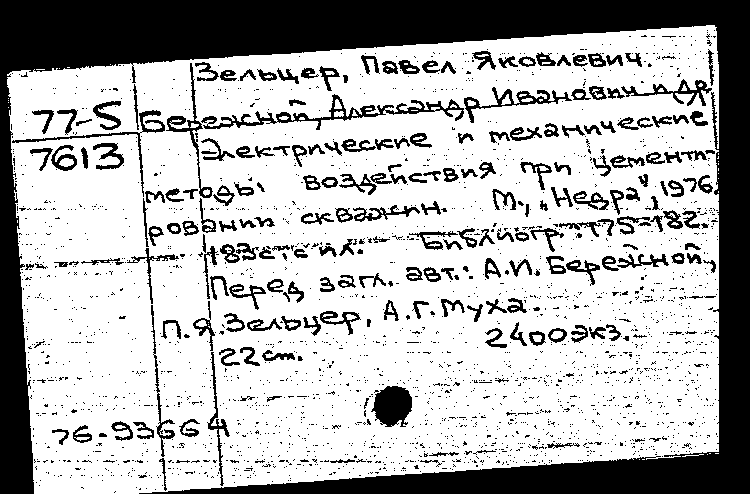 Зельцер, Павел Яковлевич.
77-S Бережной, Александр Иванович и др.
7613 Электрические и механические
методы воздействия при цементи-
ровании скважин. М., "Недра", 1976.
183с. с ил. Библиогр.: 175-182.
Перед загл. авт.: А.И. Бережной,
П.Я. Зельцер, А.Г. Муха.
22 см. 2400 экз.
76-93664